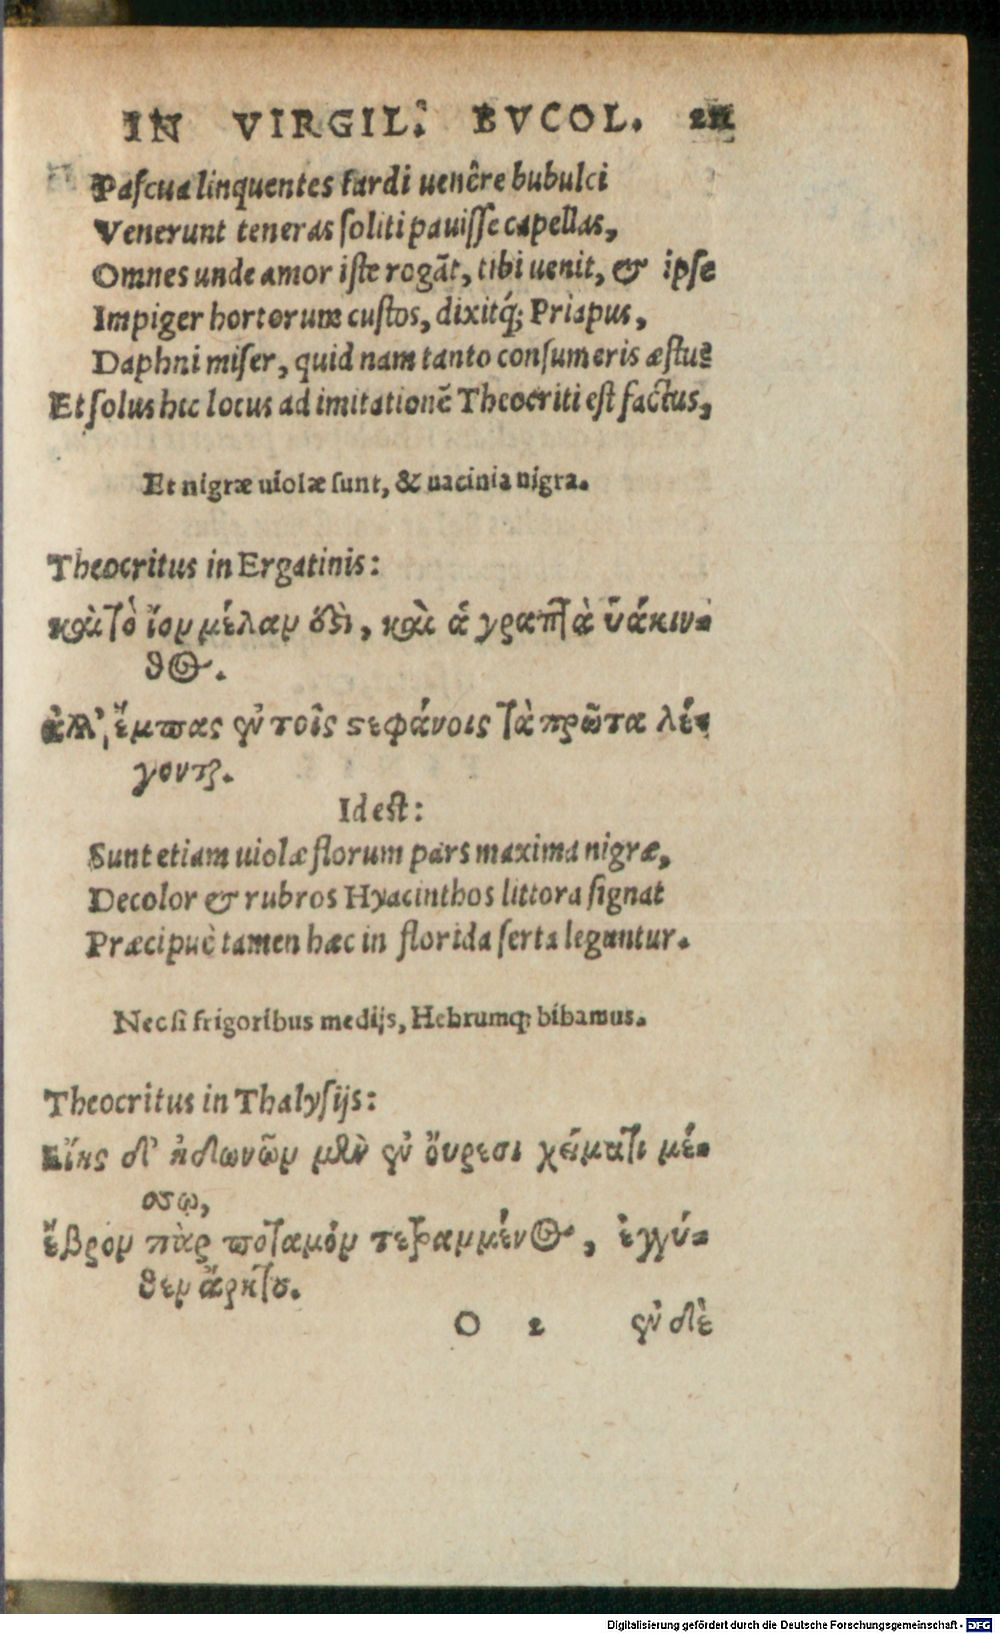 IN VIRGIL. BVCOL. 211
Pascua linquentes tardi uenêre bubulci
Venerunt teneras soliti pauisse capellas,
Omnes unde amor iste rogãt, tibi uenit, & ipse
Impiger hortorum custos, dixitq́; Priapus,
Daphni miser, quid nam tanto consumeris æstu?
Et solus hic locus ad imitationẽ Theocriti est factus,
Et nigræ uiolæ sunt, & uacinia nigra.
Theocritus in Ergatinis:
καὶ τὸ ἴον μέλαν ὅ̀ι, καὶ ἁ γραπτὰ ὑάκιν-
θος.
ἀλλ' ἔμπας ἐν τοῖς στεφάνοις τὰ πρῶτα λέ-
γονται.
Id est:
Sunt etiam uiolæ florum pars maxima nigræ,
Decolor & rubros Hyacinthos littora signat
Præcipuè tamen hæc in florida serta leguntur.
Nec si frigoribus medijs, Hebrumq; bibamus.
Theocritus in Thalysijs:
Εἴης δ' ἠδωνῶν μὲν ἐν ὄυρεσι χείματι μέ-
σσῳ,
ἕβρον πὰρ ποταμὸν τετραμμένος, ἐγγύ-
θεν ἄρκτου.
O 2 ἐν δὲ
Digitalisierung gefördert durch die Deutsche Forschungsgemeinschaft - DFG